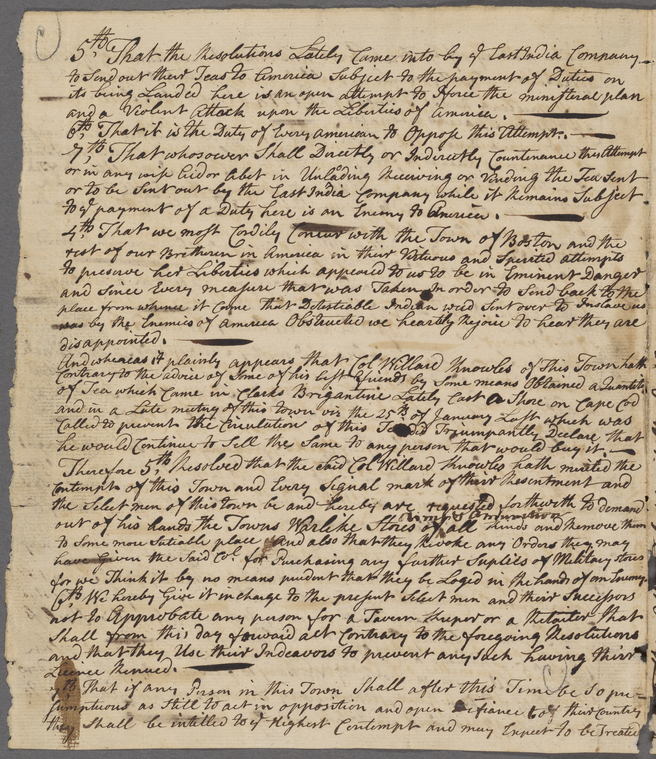 5th That the Resolutions Lately Came into by ye East India Company
to Send out their Teas to America Subject to the payment of Duties on
its being Landed here is an open attempt to Iforce the ministeral plan
and a Violent Attack upon the Liberties of America.
6th, That it is the Duty of Every american to Oppose this Attempt.
7th, That whosoever Shall Directly or Indirectly Countinance this Attempt
or in any wise Eid or Abet in Unlading Receiving or Vending the Tea Sent
or to be Sent out by the East India Company while it Remains Subject
to ye payment of a Duty here is an Enemy to America.
4th, That we most Cordily Concur with the Town of Boston and the
rest of our Bretheren in America in their Virtuous and Spirited attempts
to preserve her Liberties which appeared to us to be in Eminent Danger
and Since Every measure that was Taken In order to Send back to the
place from whence it Came that Detestiable Indian weed Sent over to Inslave us
was by the Enemies of America Obstructed we heartily Rejoice to hear they are
disappointed.
And whereas it plainly appears that Col Willard Knowles of This Town hath
Contrary to the advice of Some of his best friends by Some means Obtained a Quantity
of Tea which Came in Clarks Brigantine Lately Cast a Shore on Cape Cod
and in a Late meeting of this town viz the 25th of January Last which was
Called to prevent the Circulation of this Tea did Triumpantly Declare that
he would Continue to Sell the Same to any person that would buy it.
Therefore 5th Resolved that the said Col Willard Knowles hath merited the
Contempt of this Town and Every Signal mark of their Resentment and
the Select men of this town be and hereby are requested forthweth to demand
out of his hands the Towns Warlike Stores of all kinds and Remove them
to Some more Sutiable place and also that they Revoke any Orders they may
have Given the Said Col. for Purchasing any further Suplies of Military Stores
for we Think it by no means prudent that they be Loged in the hands of an Enemy
6th We hereby Give it in charge to the present Select men and their Successors
not to Approbate any person for a Tavern Keeper or a Retailer that
Shall from this Day forward act Contrary to the foregoing Resolutions
and that they Use their Indeavors to prevent any Such having their
Licence Renued.
7th That if any Person in this Town Shall after this Time be So pre-
sumptuous as Still to act in opposition and open defiance to of their Country
they Shall be intitled to ye Highest Contempt and may Expect to be Treated